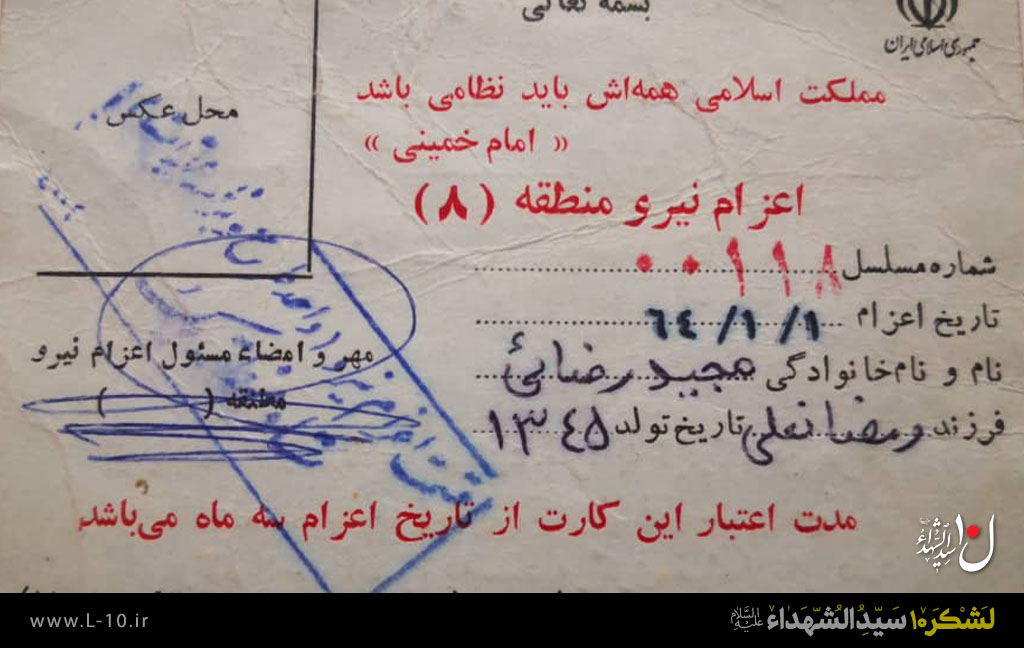 بسمه تعالی
جمهوری اسلامی ایران
مملکت اسلامی همه‌اش باید نظامی باشد
« امام خمینی »
اعزام نیرو منطقه (۸)
محل عکس
شماره مسلسل ۰۰۱۱۸
تاریخ اعزام ۶۴/۱/۱
نام و نام‌خانوادگی مجید رضائی
فرزند رمضانعلی تاریخ تولد ۱۳۴۵
مهر و امضاء مسئول اعزام نیرو
منطقه ( )
مدت اعتبار این کارت از تاریخ اعزام سه ماه می‌باشد
ل۱۰ سیدالشهداء
www.L-10.ir
لَشکَر۱۰ سَیِّدُالشُّهَداء عَلَیهِ‌السَّلام